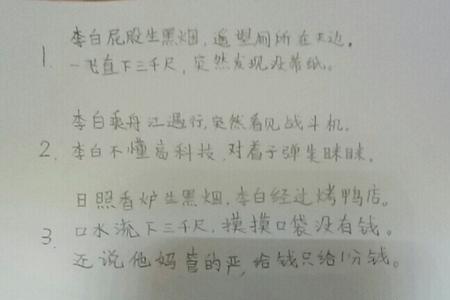 李白屁股生黑烟,遥望厕所在天边。
1. 一飞直下三千尺,突然发现没带纸。
李白乘舟江边行,突然看见战斗机。
2. 李白不懂高科技,对着子弹笑眯眯。
日照香炉生黑烟,李白经过烤鸭店。
3. 口水流下三千尺,摸摸口袋没有钱。
还说他妈管的严,给钱只给1分钱。